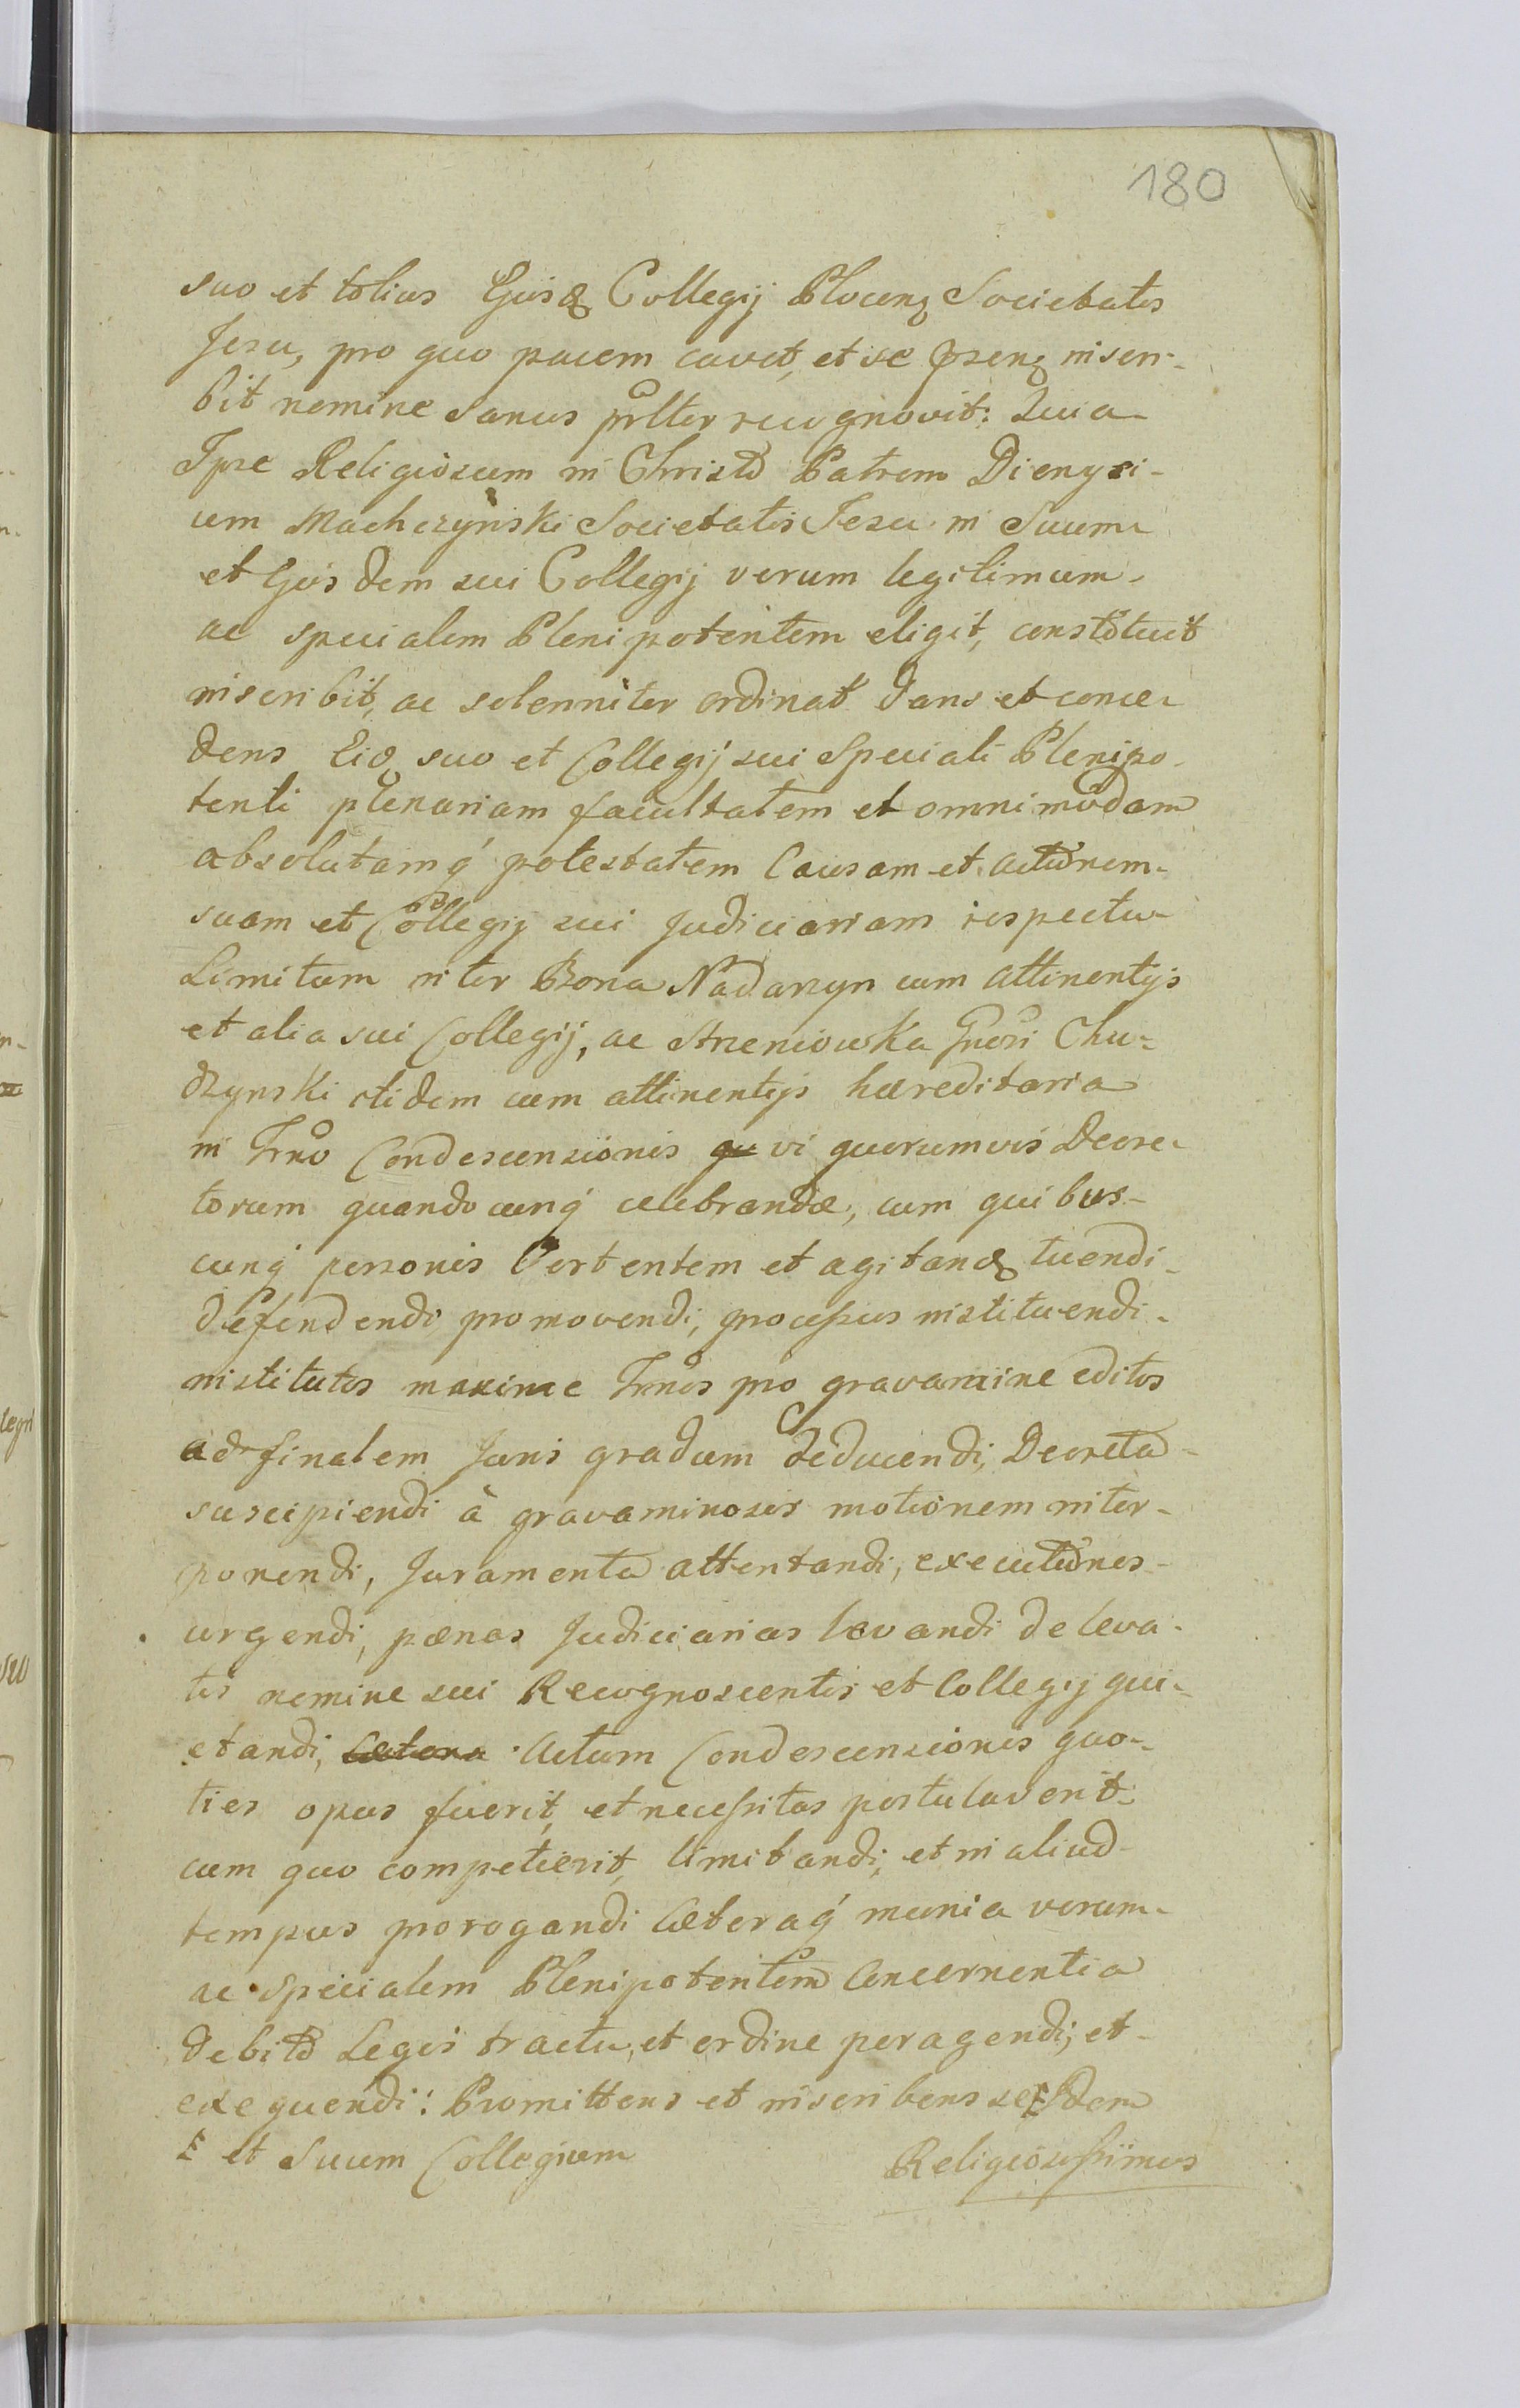 180
suo et totius Ejusd Collegij Plocen Societatis
Jesu, pro quo pacem cavet, et se pnsen inscri-
bit nomine sanus pnlter recognovit: Quia
Ipse Religiosum in Christo Patrem Dionysi-
um Machczynski Societatis Jesu in Suum
et Ejus dem sui Collegij verum legitimum
ac specialem Plenipotentem eligit, constituit
inscribit, ac solenniter ordinat dans et conce-
dens Eid suo et Collegij sui Speciali Plenipo-
tenti plenariam facultatem et omnimodam
absolutamq́ potestatem Causam et actionem
suam et Collegij sui Judiciariam respectu
Limitum inter Bona Nadarzyn cum attinentijs
et alia sui Collegij, ac Strzeniowka Gnosi Chu-
dzynski itidem cum attinentijs hæreditaria
in Tmno Condescensionis qu vi quorumvis Decre-
torum quandocunq́ celebrandæ, cum quibus-
cunq́ personis Vertentem et agitand tuendi
defendendi promovendi, processus instituendi
institutos maxime Tmnos pro gravamine editos
ad finalem Juris gradum deducendi, Decreta
suscipiendi à gravaminosis motionem inter-
ponendi, Juramenta attentandi, executiones
urgendi, pœnas Judiciarias levandi de leva-
tis nomine sui Recognoscentis et Collegij qui-
etandi, Cætera Actum Condescensionis quo-
ties opus fuerit, et necessitas postulaverit
cum quo competierit, limitandi, et in aliud
tempus prorogandi Cæteraq́ munia verum
ac specialem Plenipotentem Concernentia
debito Legis tractu, et ordine peragendi, et
exequendi: Promittens et inscribens se Idem
et Suum Collegium
Religiosissimus